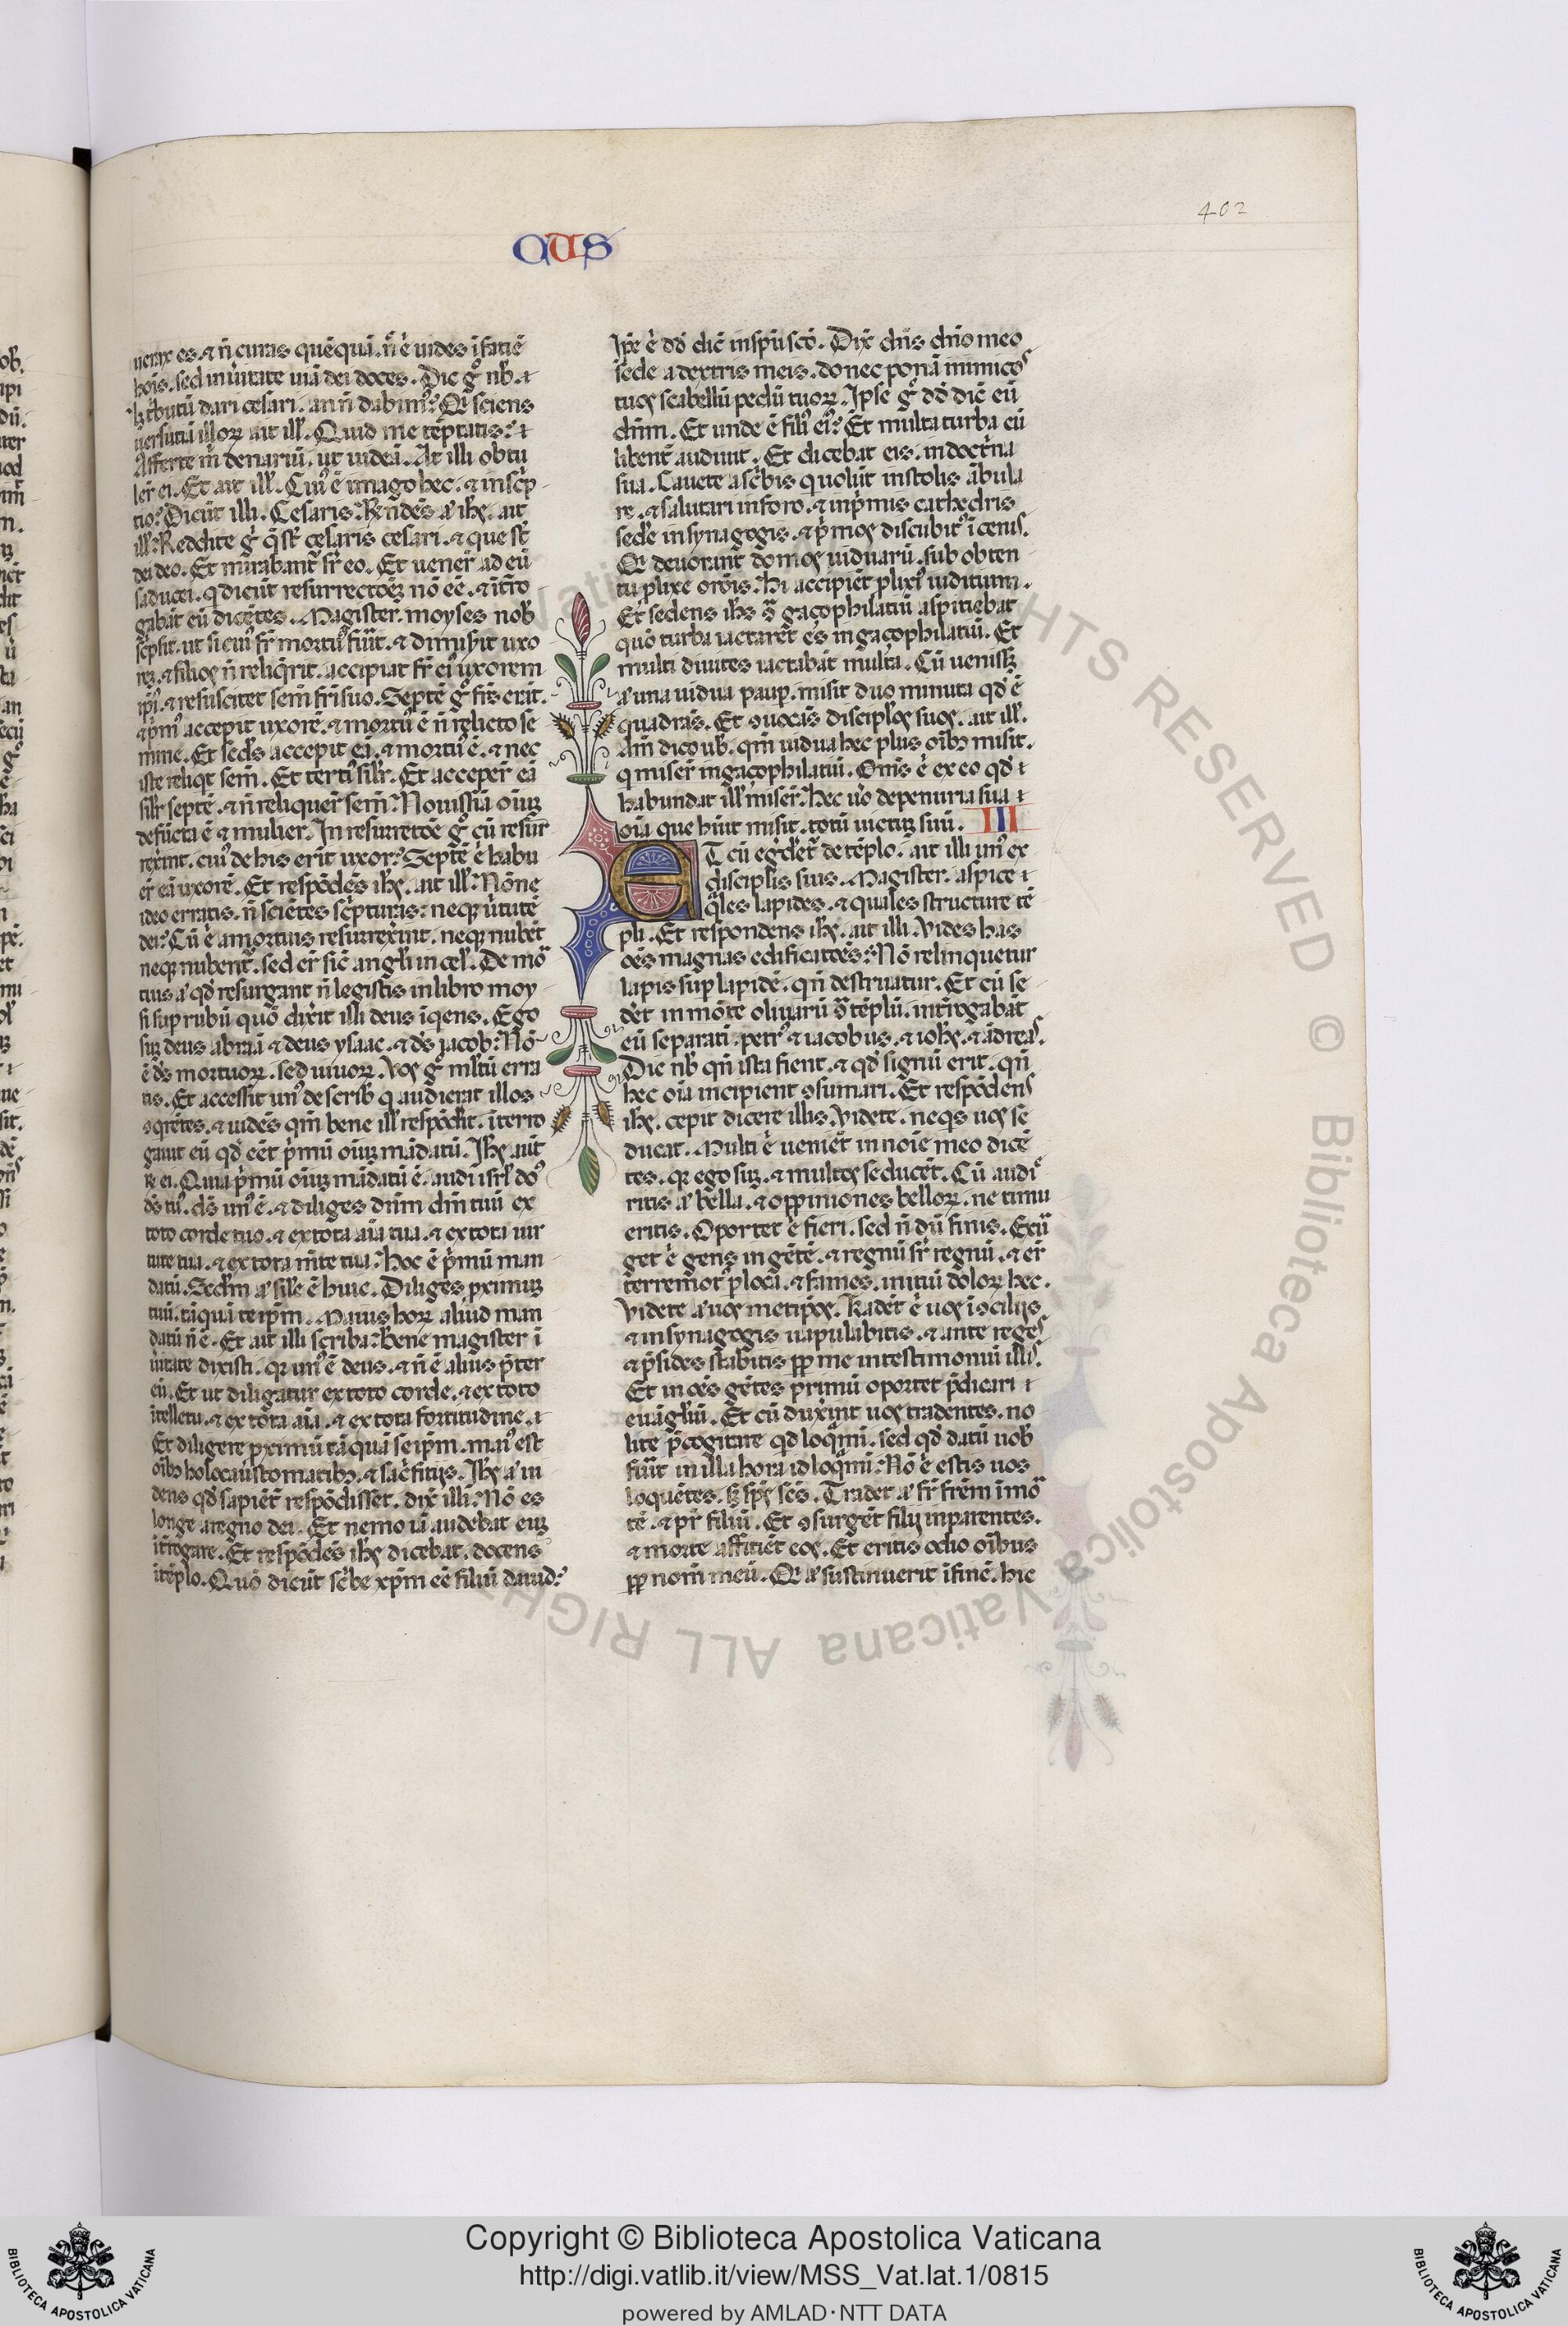 402
CUS
uerax es. ⁊ ñ curas quēquā. ñ ē uides ī fatiē
hoīs. sed in ūitate uiā dei doces. Dic gͦ nꝉ. ⁊
tͥbutū dari cesari. an ñ dabimꝰ? Qi sciens
uersutiā illoꝝ ait ill̄. Quid me tēptatis? ⁊
Afferte m̄ denariū. ut uideā. At illi obtu
ler̄ ei. Et ait ill̄. Cuiꝰ ē imago hec. ⁊ inscͥp
tio? Dicūt illi. Cesaris. Rn̄dēs aͧ ihꝫ. ait
ill̄. Reddite gͦ q̄ st̄ cesaris cesari. ⁊ que st̄
dei deo. Et mirabant̄ sr̄ eo. Et uener̄ ad eū
saducei. q dicūt resurrectōeꝫ nō eē. ⁊ īt̄ro
gabāt eū dicētes. Magister. moyses nob̄
scͥpsit. ut si cuiꝰ fr̄ mortuꝰ fūit. ⁊ dimisit uxo
reꝫ. ⁊ filios ñ reliqͥrit. accipiat fr̄ eiꝰ uxorem
ip̄i. ⁊ resuscitet sem̄ fr̄i suo. Septē gͦ fr̄s erāt.
⁊ pͥmꝰ accepit uxorē. ⁊ mortuꝰ ē ñ relicto se
mine. Et secd̄s accepit eā. ⁊ mortuꝰ ē. ⁊ nec
iste reliqͥt sem̄. Et tertiꝰ silr̄. Et acceper̄ eā
silr̄ septē. ⁊ ñ reliquer̄ sem̄. Nouissīa oīuꝫ
defūcta ē ⁊ mulier. In resurrectōe gͦ cū resur
rex̄int. cuiꝰ de his erit uxor? Septē ē habu
er̄ eā uxorē. Et respōdēs ihꝫ. ait ill̄. Nōne
ideo erratis. ñ sciētes scͥpturas. neqꝫ ūtutē
dei? Cū ē a mortuis resurrex̄int. neqꝫ nubēt
neqꝫ nubent̄. sed er̄ sic̄ angl̄i in cel̄. De moͬ
tuis aͧ qd̄ resurgant ñ legistis in libro moy
si sup rubū quō dix̄it illi deus īqens. Ego
suꝫ deus abraā ⁊ deus ysaac. ⁊ ds̄ iacob? Nō
ē ds̄ mortuoꝝ. sed uiuoꝝ. Vos gͦ ml̄tū erra
tis. Et accessit unꝰ de scrib̄ q audierat illos
ꝯqͥrētes. ⁊ uidēs qm̄ bene ill̄ respōdit. īterro
gauit eū qd̄ eēt pͥmū oīuꝫ mādatū. Ihꝫ aūt
r̄ ei. Quia pͥmū oīuꝫ mādatū ē. audi isrl̄ do
ds̄ tuꝰ. ds̄ unꝰ ē. ⁊ diliges dn̄m dm̄ tuū ex
toto corde tuo. ⁊ ex tota aīa tua. ⁊ ex tota uir
tute tua. ⁊ ex tota m̄te tua. Hoc ē pͥmū man
datū. Secd̄m aͧ sil̄e ē huic. Diliges ꝓximuꝫ
tuū. tāquā teip̄m. Maius hoꝝ aliud man
datū ñ ē. Et ait illi scriba. Bene magister ī
ūitate dixisti. qꝛ unꝰ ē deus. ⁊ ñ ē alius p̄ter
eū. Et ut diligatur ex toto corde. ⁊ ex toto
ītellectu. ⁊ ex tota aīa. ⁊ ex tota fortitudine. ⁊
Et diligere ꝓximū tāquā seip̄m. maiꝰ est
oībꝫ holocaustomatibꝫ. ⁊ sacͥfitijs. Ihꝫ aͧ ui
dens qd̄ sapiēt̄ respōdisset. dix̄ illi. Nō es
longe a regno dei. Et nemo iā audebat euꝫ
īt̄rogare. Et respōdēs ihꝫ dicebat. docens
ī tēplo. Quō dicūt scͥbe xp̄m eē filiū dauid?
Ip̄e ē dd̄ dic̄ in spū scō. Dix̄ dn̄s dn̄o meo
sede a dextris meis. donec ponā inimicos
tuos scabellū pedū tuoꝝ. Ipse gͦ dd̄ dic̄ eū
dn̄m. Et unde ē filiꝰ eiꝰ? Et multa turba eū
libent̄ audiuit. Et dicebat eis. in doctͥna
sua. Cauete a scͥbis q uolūt in stolis ābula
re. ⁊ salutari in foro. ⁊ in pͥmis cathedris
sede̅ in synagogis. ⁊ pͥmos discubitꝰ ī cenis.
Qi deuorant domos uiduarū. sub obten
tu ꝓlixe orōis. Hi accipiēt ꝓlixiꝰ iuditium.
Et sedens ihs ꝯͣ gaçophilatiū aspitiebat
quō turba iactaret es in gaçophilatiū. Et
multi diuites iactabāt multa. Cū uenissꝫ
aͧ una uidua paup. misit duo minuta qd̄ ē
quadrās. Et ꝯuocās discipl̄os suos. ait ill̄.
Am̄ dico ub̄. qm̄ uidua hec plus oībꝫ misit.
q miser̄ in gaçophilatiū. Om̄s ē ex eo qd̄ ⁊
habundat ill̄ miser̄. hec ūo de penuria sua ⁊
oīa que hūit misit. totū uictuꝫ suū. III
ET cū egͥder̄et̄ de tēplo. ait illi unꝰ ex
disciplis suis. Magister. aspice ⁊
q̄les lapides. ⁊ quales structure tē
pli. Et respondens ihꝫ. ait illi. Vides has
oēs magnas edificatōēs? Nō relinquetur
lapis sup lapidē. qn̄ destruatur. Et cū se
der̄et in mōte oliuarū ꝯͣ tēplū. int̄rogabāt
eū separati. petrꝰ ⁊ iacobus. ⁊ iohꝫ. ⁊ ādreas.
Dic nb̄ qn̄ ista fient. ⁊ qd̄ signū erit. qn̄
hec oīa incipient ꝯsumari. Et respōdens
ihꝫ. cepit dicere illis. Videte. neqͥs uos se
ducat. Multi ē ueniēt in noīe meo dicē
tes. qꝛ ego suꝫ. ⁊ multos seducēt. Cū audi
ritis aͧ bella. ⁊ oppiniones belloꝝ. ne timu
eritis. Oportet ē fieri. sed ñ dū finis. Exur
get ē gens in gētē. ⁊ regnū sr̄ regnū. ⁊ er̄
terremotꝰ p loca. ⁊ fames. initiū doloꝝ hec.
Videte aͧ uos metip̄os. Tradēt ē uos ī ꝯcilijs
⁊ in synagogis uapulabitis. ⁊ ante reges
⁊ p̄sides stabitis ꝓp me in testimoniū illis.
Et in oēs gētes primū oportet p̄dicari ⁊
euāgl̄iū. Et cū dux̄int uos tradentes. no
lite p̄cogitare qd loqͣmī. sed qd̄ datū uob̄
fūit in illa hora id loqͥmī. Nō ē estis uos
loquētes. sꝫ spūs scs̄. Tradet aͧ fr̄ fr̄em ī moͬ
tē. ⁊ pr̄ filiū. Et ꝯsurgēt filij in parentes.
⁊ morte affitiēt eos. Et eritis odio oībus
ꝓp nom̄ meū. Qi aͧ sustinuerit ī finē. hic
Copyright © Biblioteca Apostolica Vaticana
http://digi.vatlib.it/view/MSS_Vat.lat.1/0815
powered by AMLAD·NTT DATA